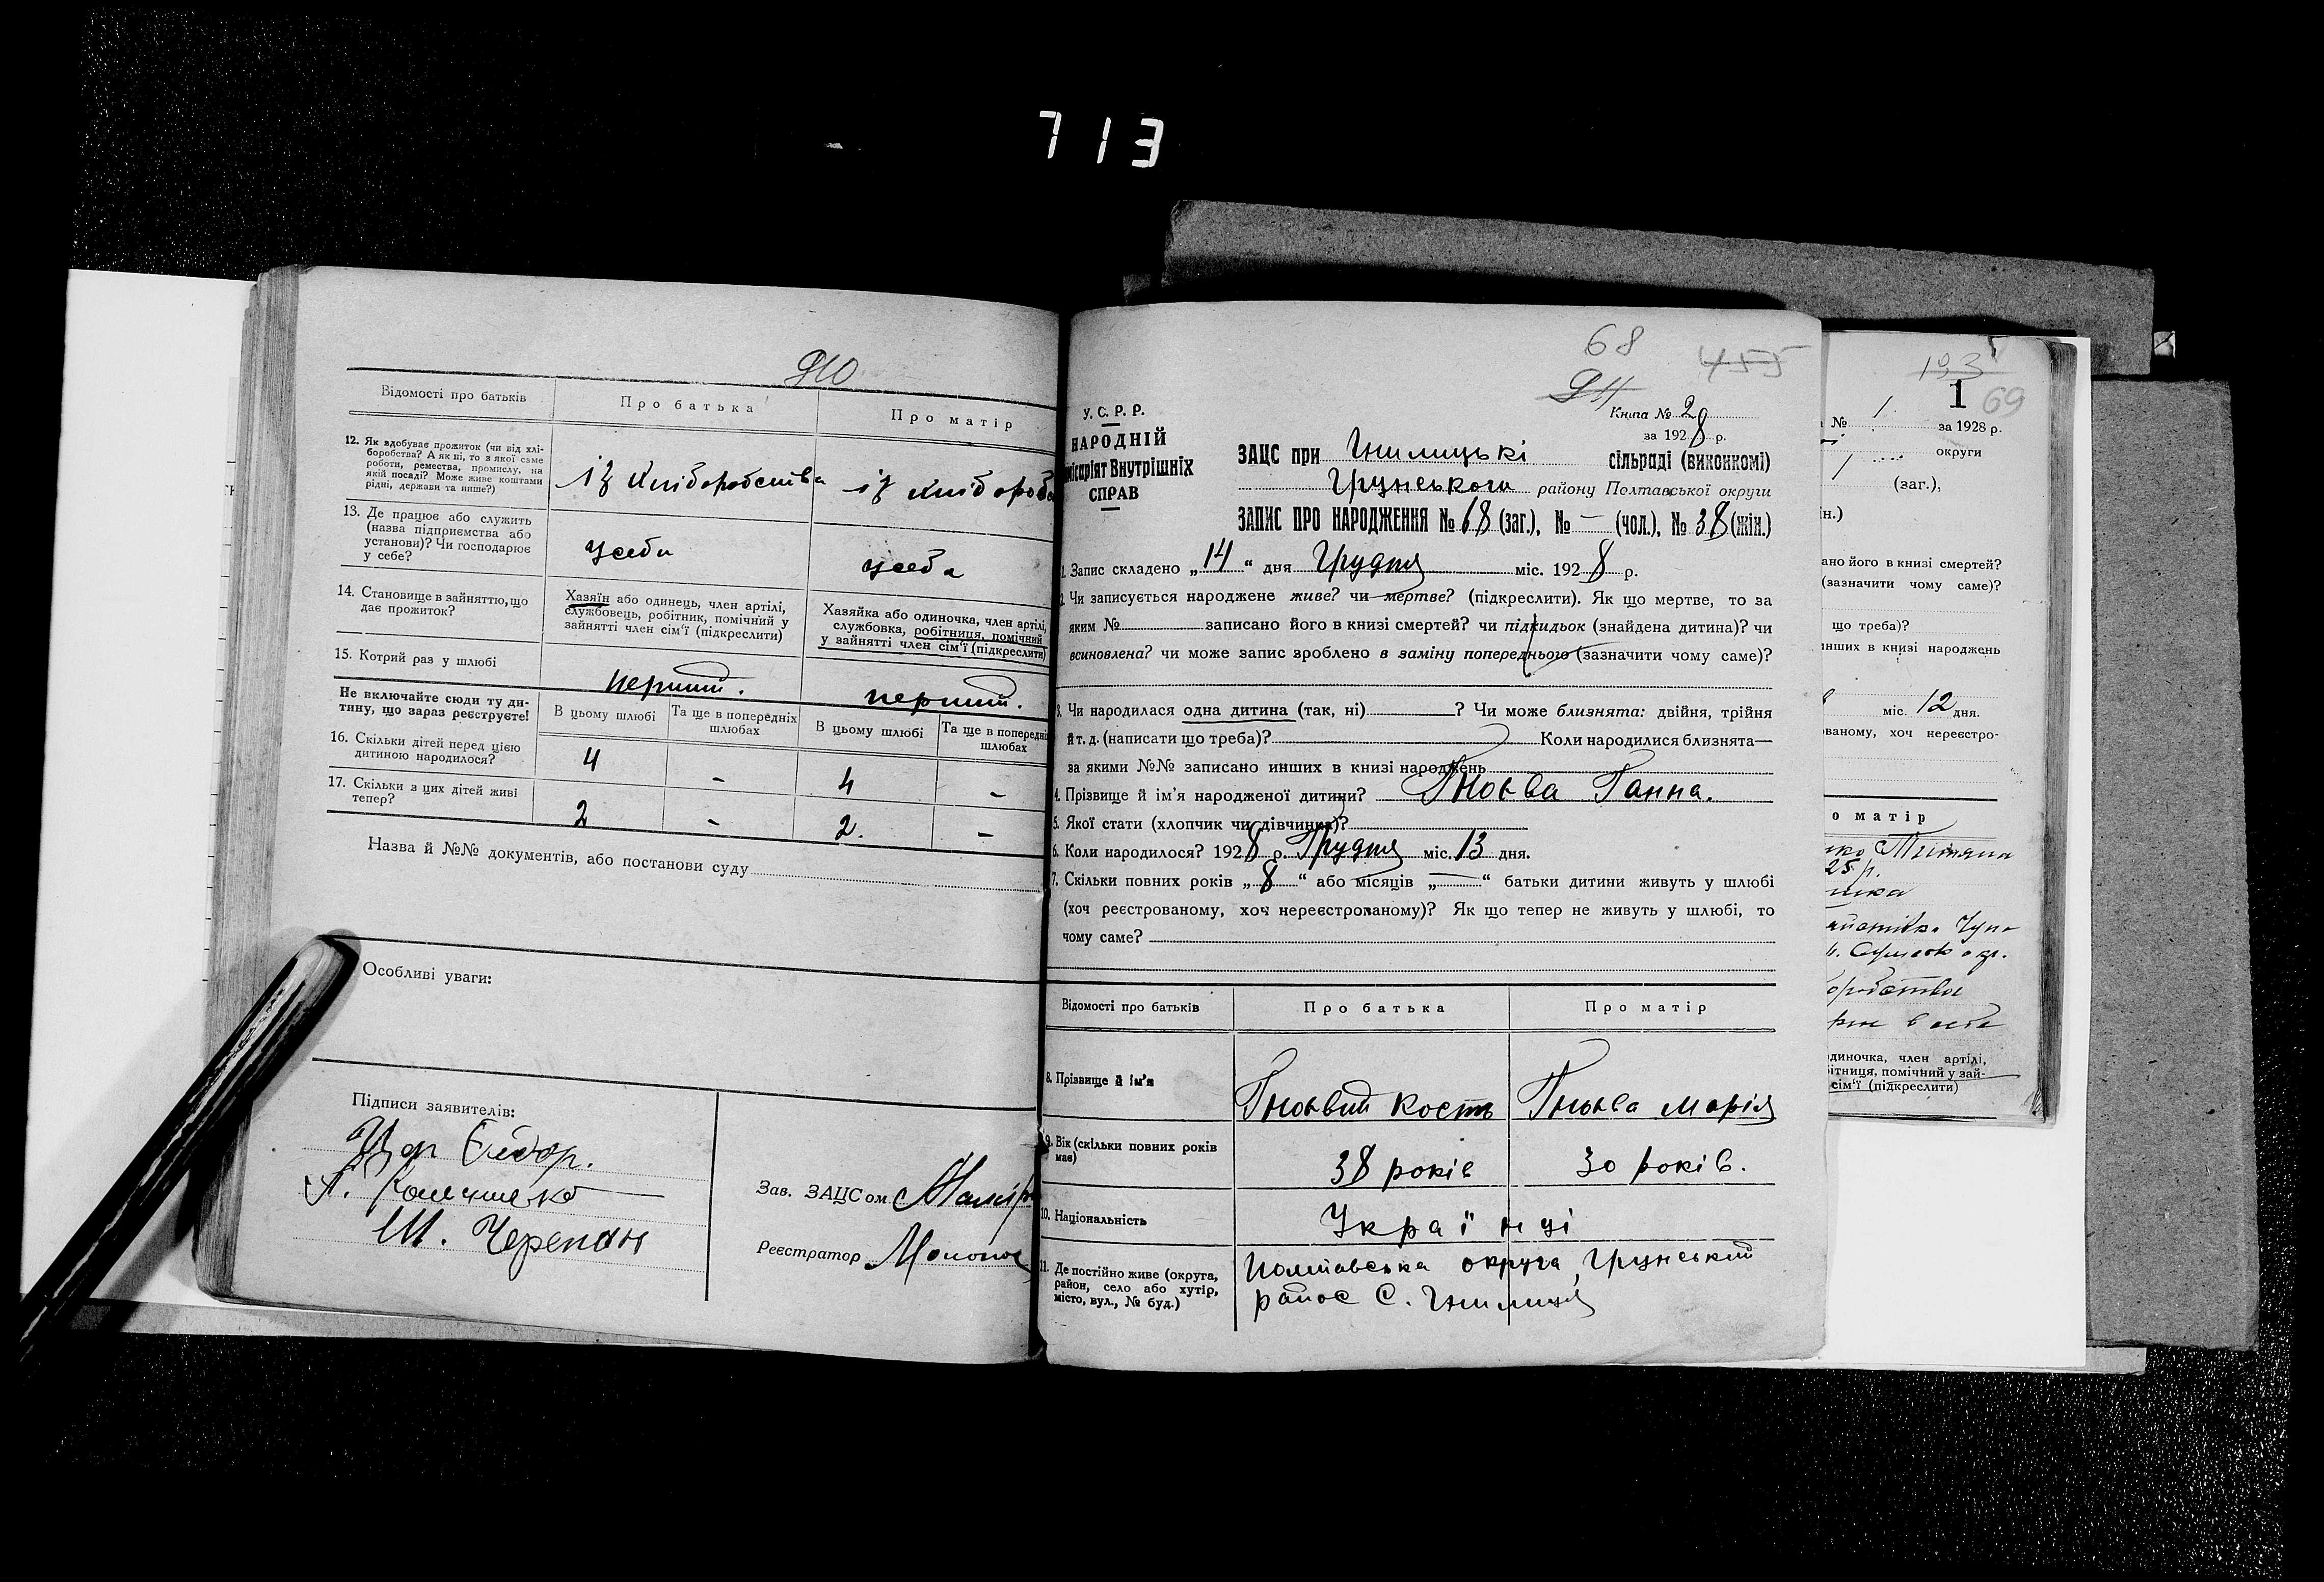 713
910
Відомості про батьків
Про батька
Про матір
12. Як здобуває прожиток (чи від хлі-
боробства? А як ні, то з якої саме
роботи, ремества, промислу, на
якій посаді? Може живе коштами
рідні, держави та инше?)
із хліборобства
із хлібороб
13. Де працює або служить
(назва підприємства або
установи)? Чи господарює
у себе?
у себе
у себе
14. Становище в зайняттю, що
дає прожиток?
Хазяїн або одинець, член артілі,
службовець, робітник, помічний у
зайнятті член сім'ї (підкреслити)
Хазяйка або одиночка, член артілі,
службовка, робітниця, помічний
у зайнятті член сім'ї (підкреслити)
15. Котрий раз у шлюбі
перший.
перший.
Не включайте сюди ту ди-
тину, що зараз реєструєте!
В цьому шлюбі
Та ще в попередніх
шлюбах
В цьому шлюбі
Та ще в попередні
шлюбах
16. Скільки дітей перед цією
дитиною народилося?
4 - 4 -
17. Скільки з цих дітей живі
тепер?
2 - 2. -
Назва й №№ документів, або постанови суду
Особливі уваги:
Підписи заявителів:
Ш. Черепан
Зав. ЗАЦСом
Реєстратор
68
455
94
У. С. Р. Р.
НАРОДНІЙ
місаріят Внутрішніх
СПРАВ
Книга № 20
за 1928 р.
ЗАЦС при Гнилицькі сільраді (виконкомі)
Грунського району Полтавської округи
ЗАПИС ПРО НАРОДЖЕННЯ № 68 (заг.), № — (чол.), № 38 (жін.)
1. Запис складено „14“ дня Грудня міс. 1928 р.
2. Чи записується народжене живе? чи мертве? (підкреслити). Як що мертве, то за
яким № записано його в книзі смертей? чи підкидьок (знайдена дитина)? чи
всиновлена? чи може запис зроблено в заміну попереднього (зазначити чому саме)?
3. Чи народилася одна дитина (так, ні) ? Чи може близнята: двійня, трійня
й т. д. (написати що треба)? Коли народилися близнята—
за якими №№ записано инших в книзі народжень
4. Прізвище й ім'я народженої дитини? Гноєва Ганна.
5. Якої стати (хлопчик чи дівчинка)?
6. Коли народилося? 1928 р. Грудня міс. 13 дня.
7. Скільки повних років „8“ або місяців „—“ батьки дитини живуть у шлюбі
(хоч реєстрованому, хоч нереєстрованому)? Як що тепер не живуть у шлюбі, то
чому саме?
Відомості про батьків
Про батька
Про матір
8. Прізвище й ім'я
Гноєвий Кость
Гноєва Марія
9. Вік (скільки повних років
має)
38 років
30 років.
10. Національність
Українці
11. Де постійно живе (округа,
район, село або хутір,
місто, вул., № буд.)
Полтавська округа, Грунський
район С. Гнилиця
193
1
69
№ 1. за 1928 р.
округи
1 (заг.),
ін.)
ано його в книзі смертей?
(зазначити чому саме)?
що треба)?
инших в книзі народжень
міс. 12 дня.
ованому, хоч нереєстро-
о матір
25 р.
одиночка, член артілі,
бітниця, помічний у зай-
сім'ї (підкреслити)